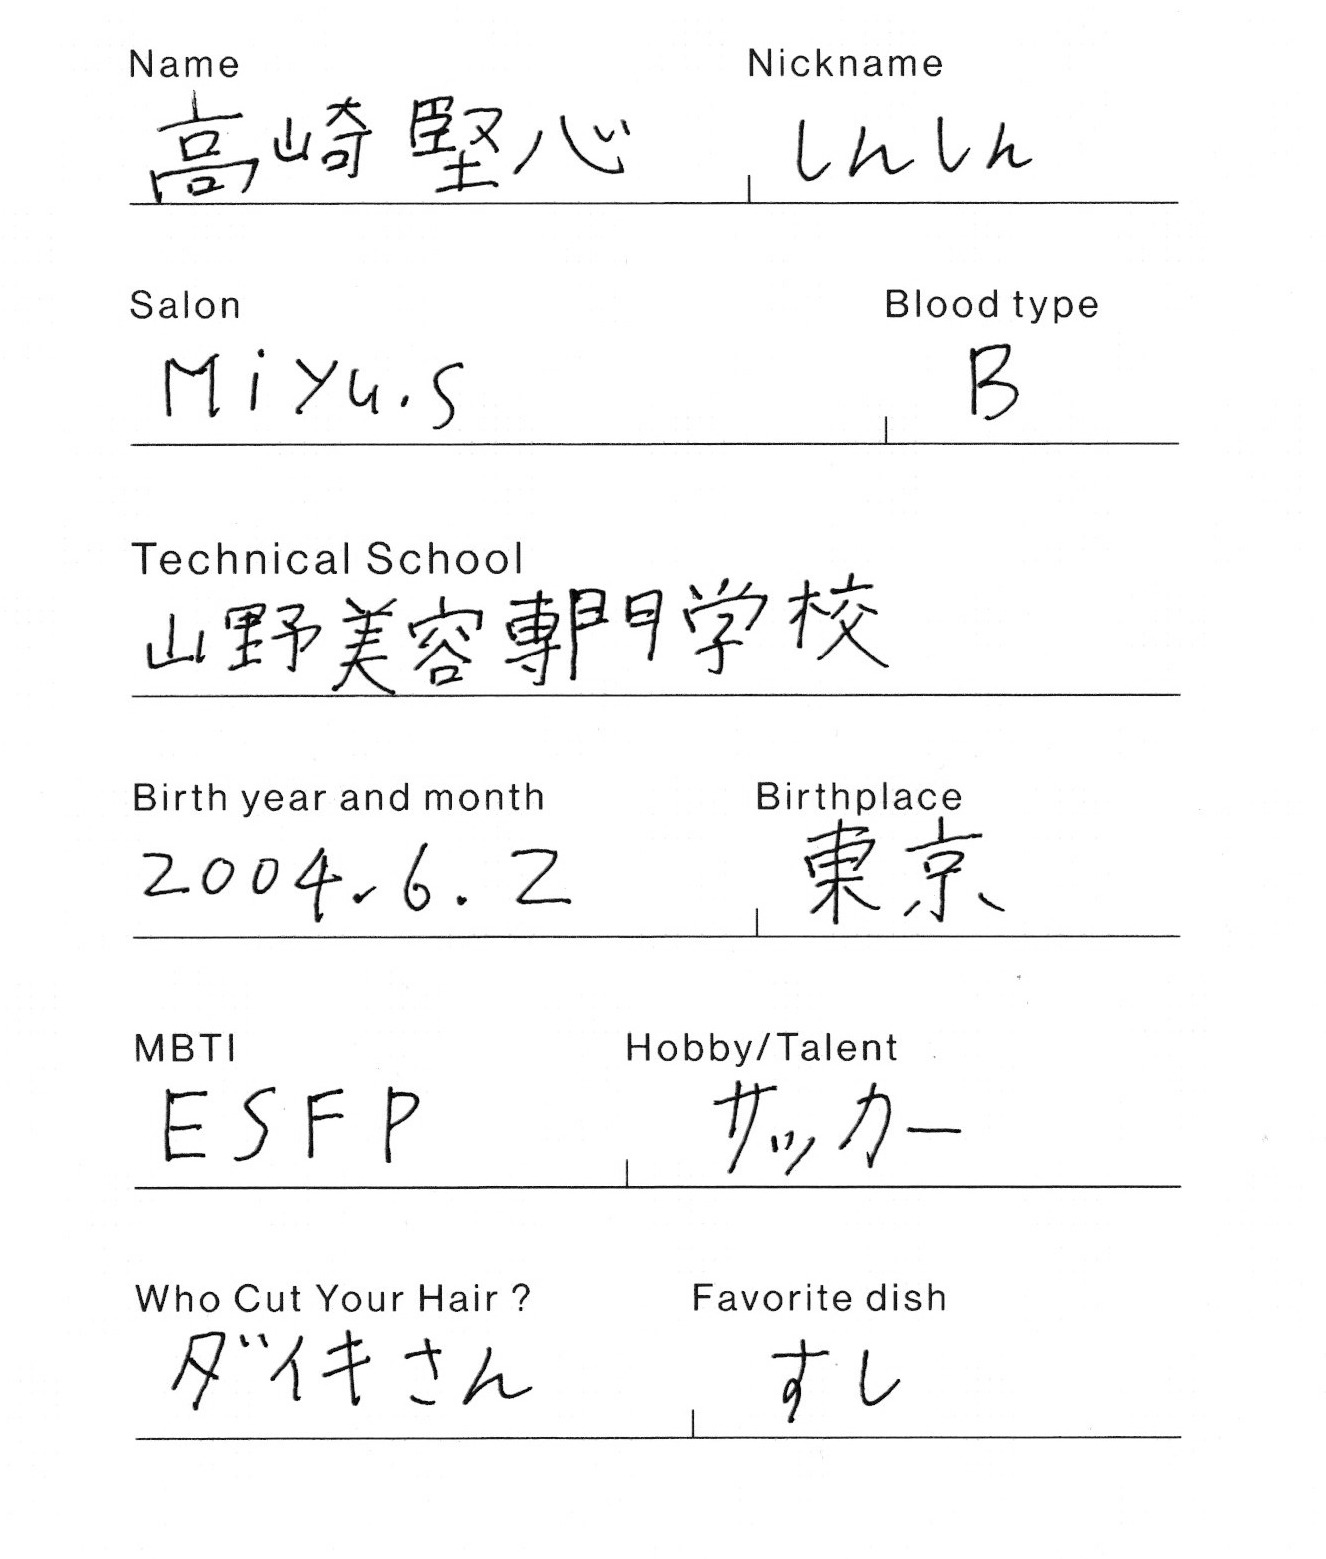 Name Nickname
高崎堅心 しんしん
Salon Blood type
Miyu.s B
Technical School
山野美容専門学校
Birth year and month Birthplace
2004.6.2 東京
MBTI Hobby/Talent
ESFP サッカー
Who Cut Your Hair ? Favorite dish
ダイキさん すし